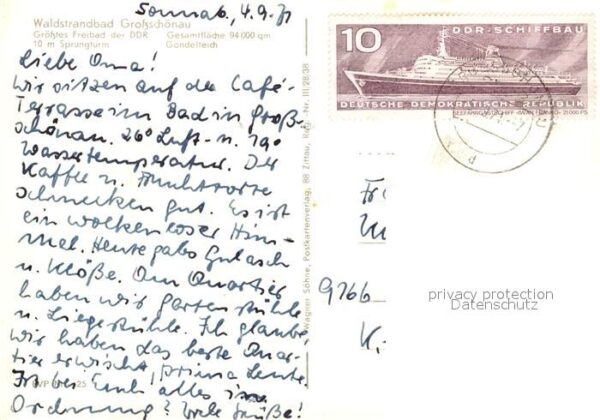 Sonnab., 4.9.71
Waldstrandbad Großschönau
Größtes Freibad der DDR Gesamtfläche 94000 qm
10 m Sprungturm Gondelteich
Liebe Oma!
Wir sitzen auf der Café-
Terrasse im Bad in Groß-
schönau. 26° Luft- u. 19°
Wassertemperatur. Der
Kaffee u. Fruchttorte
schmecken gut. Es ist
ein wolkenloser Him-
mel. Heute gabs Gulasch
u. Klöße. Am Quartier
haben wir Gartenstühle
u. Liegestühle. Ich glaube,
wir haben das beste Quar-
tier erwischt, prima Leute.
Ist bei Euch alles in
Ordnung? Viele Grüße!
Wagner Söhne, Postkartenverlag, 88 Zittau, Reg. Nr. III 28/38
10
DDR-SCHIFFBAU
DEUTSCHE DEMOKRATISCHE REPUBLIK
9766
K
privacy protection
Datenschutz